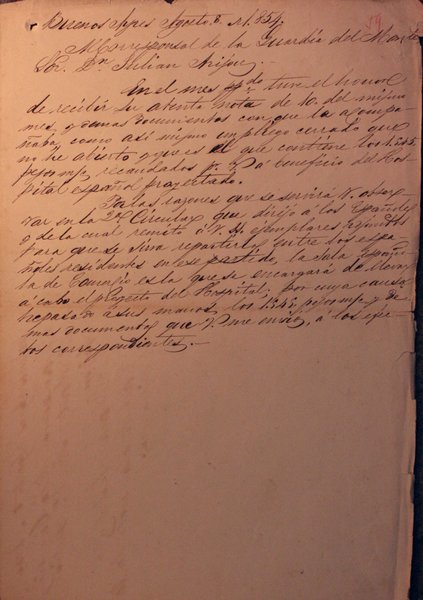 Buenos Ayres Agosto 8, de 1854.
Al Corresponsal de la Guardia del Monte
Sr. Dn. Julian
En el mes ppdo. tuve el honor
de recibir su atenta nota de 10. del mismo
mes, y demas documentos con que la acompa-
ñaba como asi mismo un pliego cerrado que
no he abierto y que es el que contiene los 1545.
pesos m/c recaudados p. V. á beneficio del Hos-
pital español proyectado.
Por las razones que se servirá V. obser-
var en la 2a. Circular que dirijo á los Españoles
y de la cual remito á V. 4 ejemplares
para que se sirva repartirlos entre los espa-
ñoles residentes en ese partido, la Sala Españo-
la de Comercio es la que se encargará de llevar
á cabo el proyecto del Hospital; por cuya causa
he pasado á sus manos los 1545. pesos m/c y de-
mas documentos que V. me envió, á los efec-
tos correspondientes.